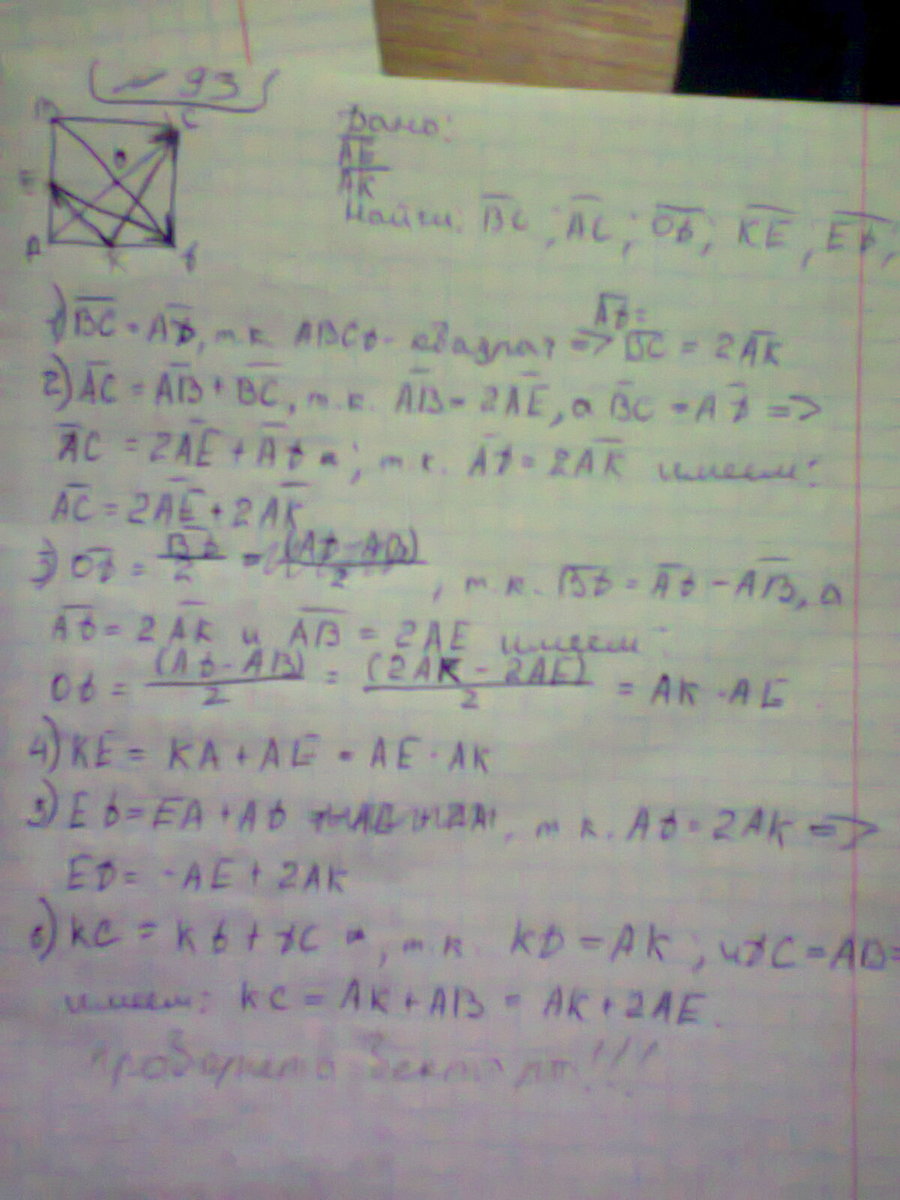 93
C
K
Дано:
AE
AK
Найти: BC; AC; OD; KE; ED,
1) BC = AD, т.к. ABCD - квадрат => BC = 2AK
AD =
2) AC = AB + BC, т.к. AB = 2AE, а BC = AD =>
AC = 2AE + AD; т.к. AD = 2AK имеем:
AC = 2AE + 2AK
3) OD = BD/2 = (AD - AB)/2, т.к. BD = AD - AB, а
AD = 2AK и AB = 2AE имеем:
OD = (AD - AB)/2 = (2AK - 2AE)/2 = AK - AE
4) KE = KA + AE = AE - AK
5) ED = EA + AD, т.к. AD = 2AK =>
ED = -AE + 2AK
6) KC = KD + DC =, т.к. KD = AK; и DC = AB =
имеем: KC = AK + AB = AK + 2AE.